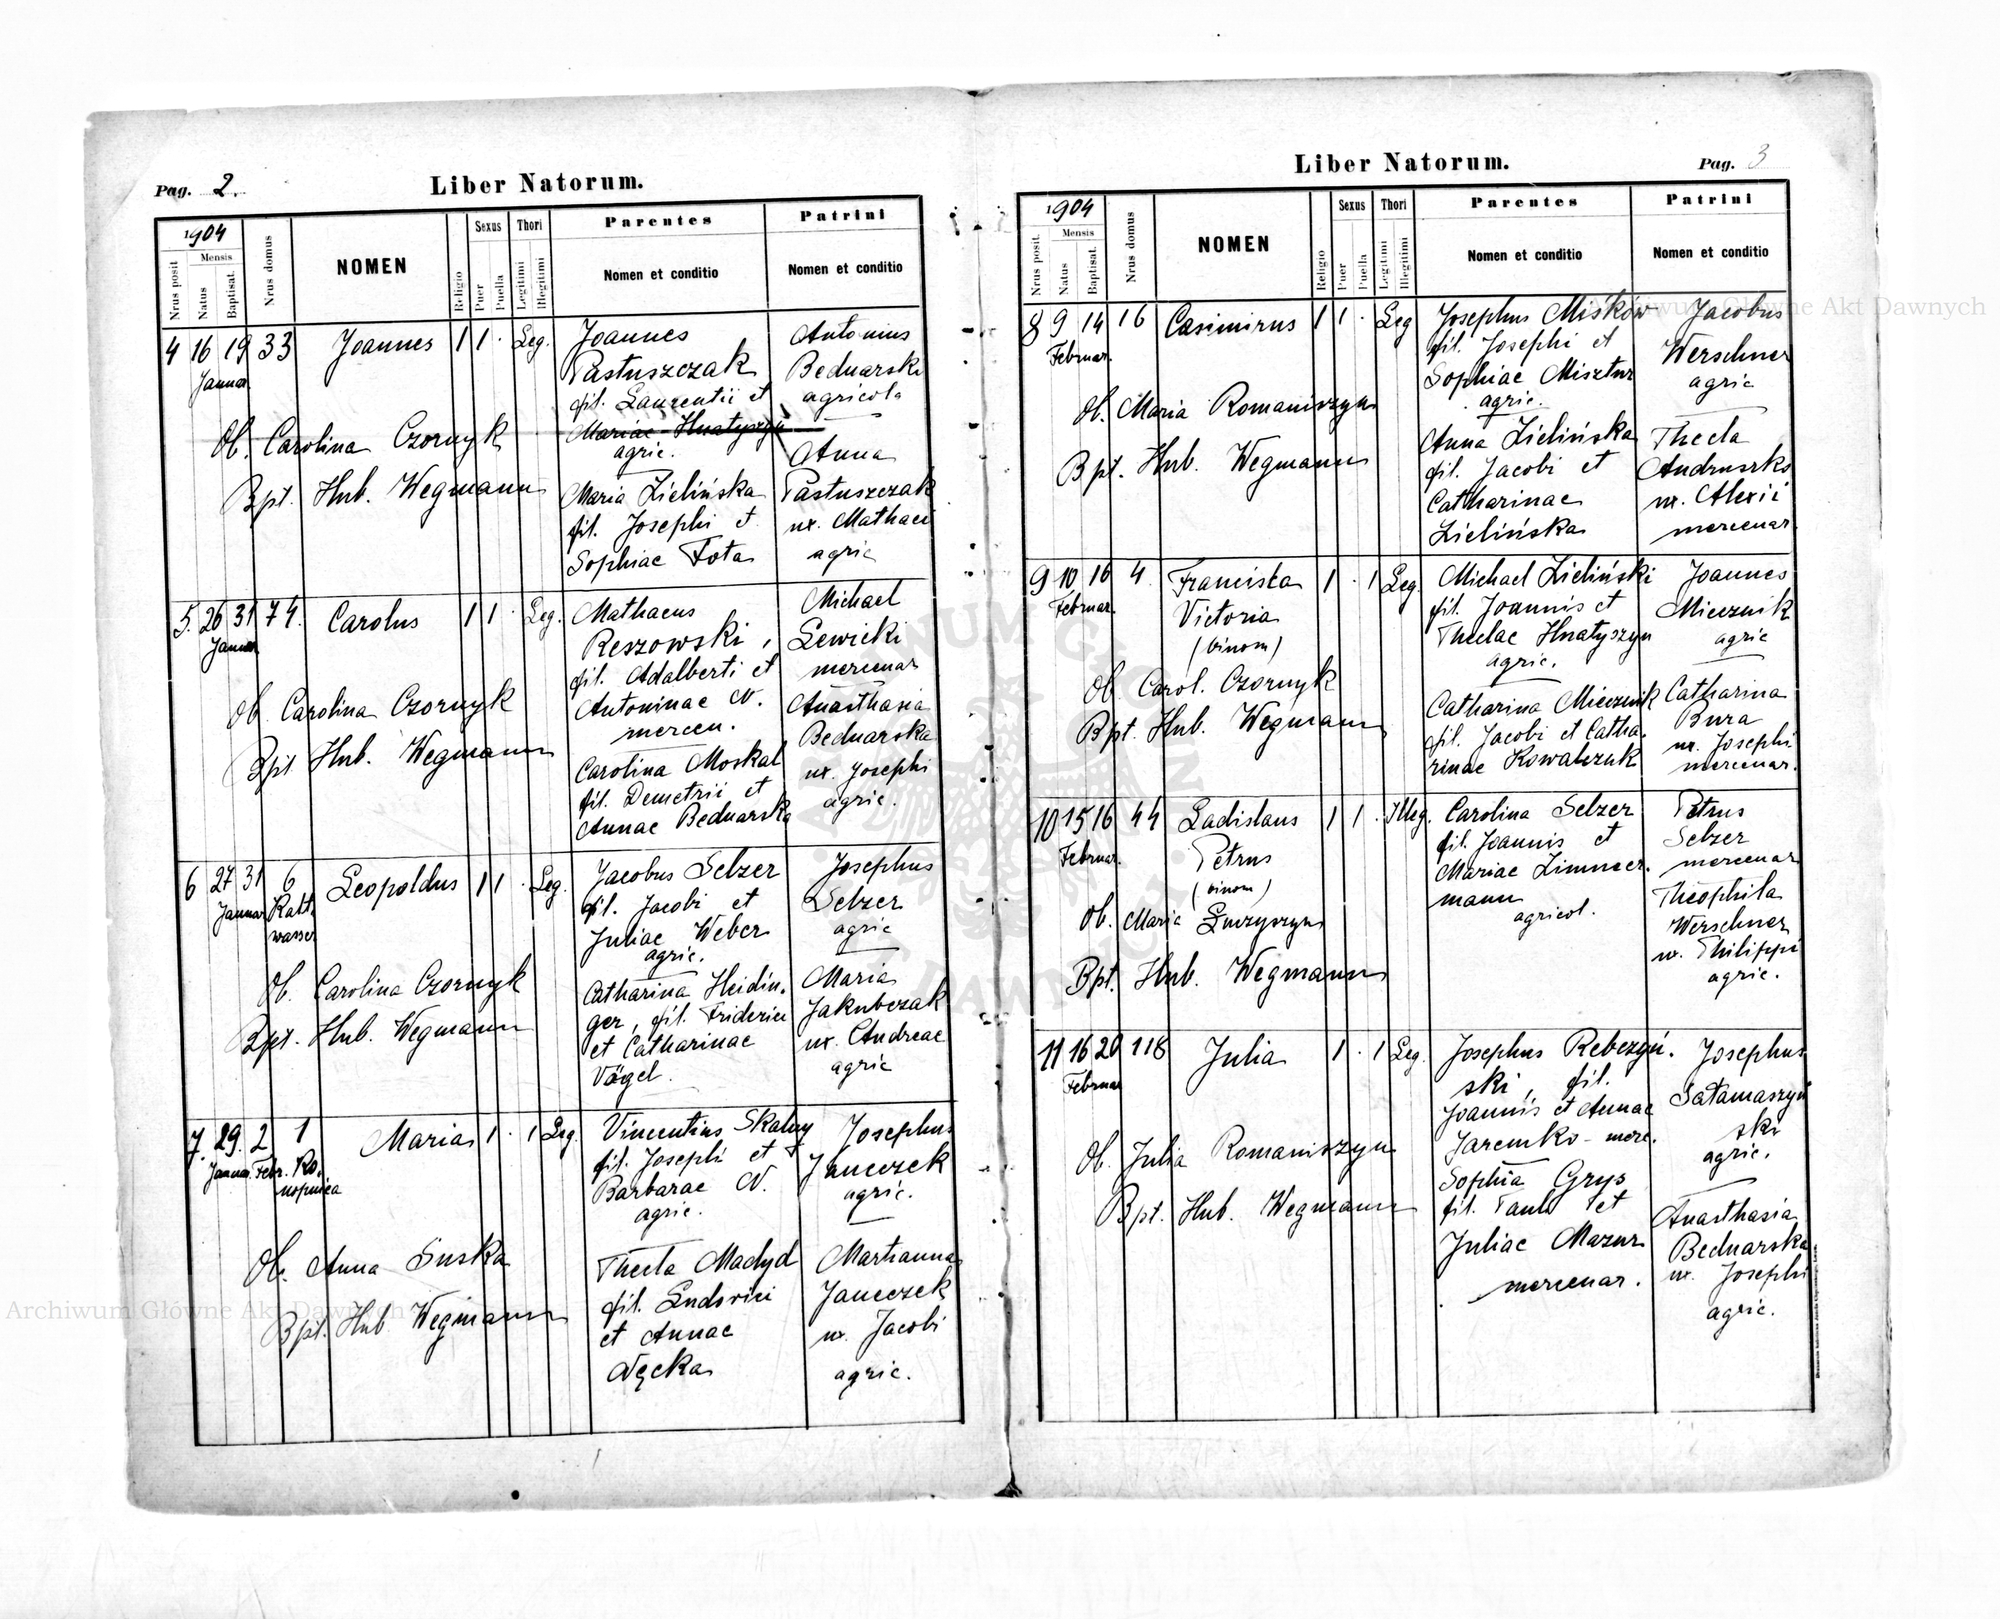 Pag. 2.
Liber Natorum.
1904
Mensis
Nrus posit
Natus
Baptisat.
Nrus domus
NOMEN
Religio
Sexus
Puer
Puella
Thori
Legitimi
Illegitimi
Parentes
Nomen et conditio
Patrini
Nomen et conditio
4 16 19 33 Joannes 1 1 · Leg.
Januar.
Joannes
Pastuszczak
fil. Laurentii et
Mariae Hnatyszyn
agric.
Maria Zielińska
fil. Josephi et
Sophiae Fota
Antonius
Bednarski
agricola
Anna
Pastuszczak
ux. Mathaei
agric
Ob. Carolina Czornyk
Bpt. Hub. Wegmann
5. 26 31 74. Carolus 1 1 · Leg.
Januar
Mathaeus
Reszowski,
fil. Adalberti et
Antoninae N.
mercen.
Carolina Moskal
fil. Demetrii et
Annae Bednarska
Michael
Lewicki
mercenar
Anasthasia
Bednarska
ux. Josephi
agric.
Ob. Carolina Czornyk
Bpt Hub. Wegmann
6 27 31 6 Leopoldus 1 1 · Leg.
Januar Kalt
wasser
Jacobus Selzer
fil. Jacobi et
Juliae Weber
agric.
Catharina Heidin.
ger, fil. Friderici
et Catharinae
Vögel.
Josephus
Selzer
agric
Maria
Jakubczak
ux. Andreae
agric
Ob. Carolina Czornyk
Bpt. Hub. Wegmann
7. 29. 2 1 Maria 1 · 1 Leg.
Januar Febr. Ko.
nopnica
Vincentius Skalny
fil. Josephi et
Barbarae N.
agric.
Thecla Madyd
fil. Ludovici
et Annae
Węcka
Josephus
Janeczek
agric.
Marianna
Janeczek
ux. Jacobi
agric.
Ob. Anna Suska
Bpt. Hub Wegmann
Liber Natorum.
Pag. 3
1904
Mensis
Nrus posit.
Natus
Baptisat.
Nrus domus
NOMEN
Religio
Sexus
Puer
Puella
Thori
Legitimi
Illegitimi
Parentes
Nomen et conditio
Patrini
Nomen et conditio
8 9 14 16 Casimirus 1 1 · Leg
Februar.
Josephus Miskow
fil. Josephi et
Sophiae Misztur
agric.
Anna Zielińska
fil. Jacobi et
Catharinae
Zielińska
Jacobus
Werschner
agric
Thecla
Andruszko
ux. Alexii
mercenar.
Ob. Maria Romaniszyn
Bpt. Hub. Wegmann
9 10 16 4. Francisca 1 · 1 Leg.
Februar. Victoria
(binom)
Michael Zieliński
fil. Joannis et
Theclae Hnatyszyn
agric.
Catharina Miecznik
fil. Jacobi et Catha.
rinae Kowalczuk
Joannes
Miecznik
agric
Catharina
Bura
ux. Josephi
mercenar.
Ob Carol. Czornyk
Bpt. Hub. Wegmann
10 15 16 44 Ladislaus 1 1 · Illeg.
Februar. Petrus
(binom)
Carolina Selzer
fil. Joannis et
Mariae Zimmer.
mann
agricol.
Petrus
Selzer
mercenar
Theophila
Werschner
ux. Philippi
agric.
Ob. Maria
Bpt. Hub. Wegmann
11 16 20 118 Julia 1 · 1 Leg.
Februar
Josephus Rebczyń.
ski, fil.
Joannis et Annae
Jaremko - merc.
Sophia Grys
fil. Pauli et
Juliae Mazur
mercenar.
Josephus
Satamaszyń
ski
agric.
Anasthasia
Bednarska
ux. Josephi
agric.
Ob. Julia Romaniszyn
Bpt. Hub. Wegmann
Archiwum Główne Akt Dawnych
Archiwum Główne Akt Dawnych